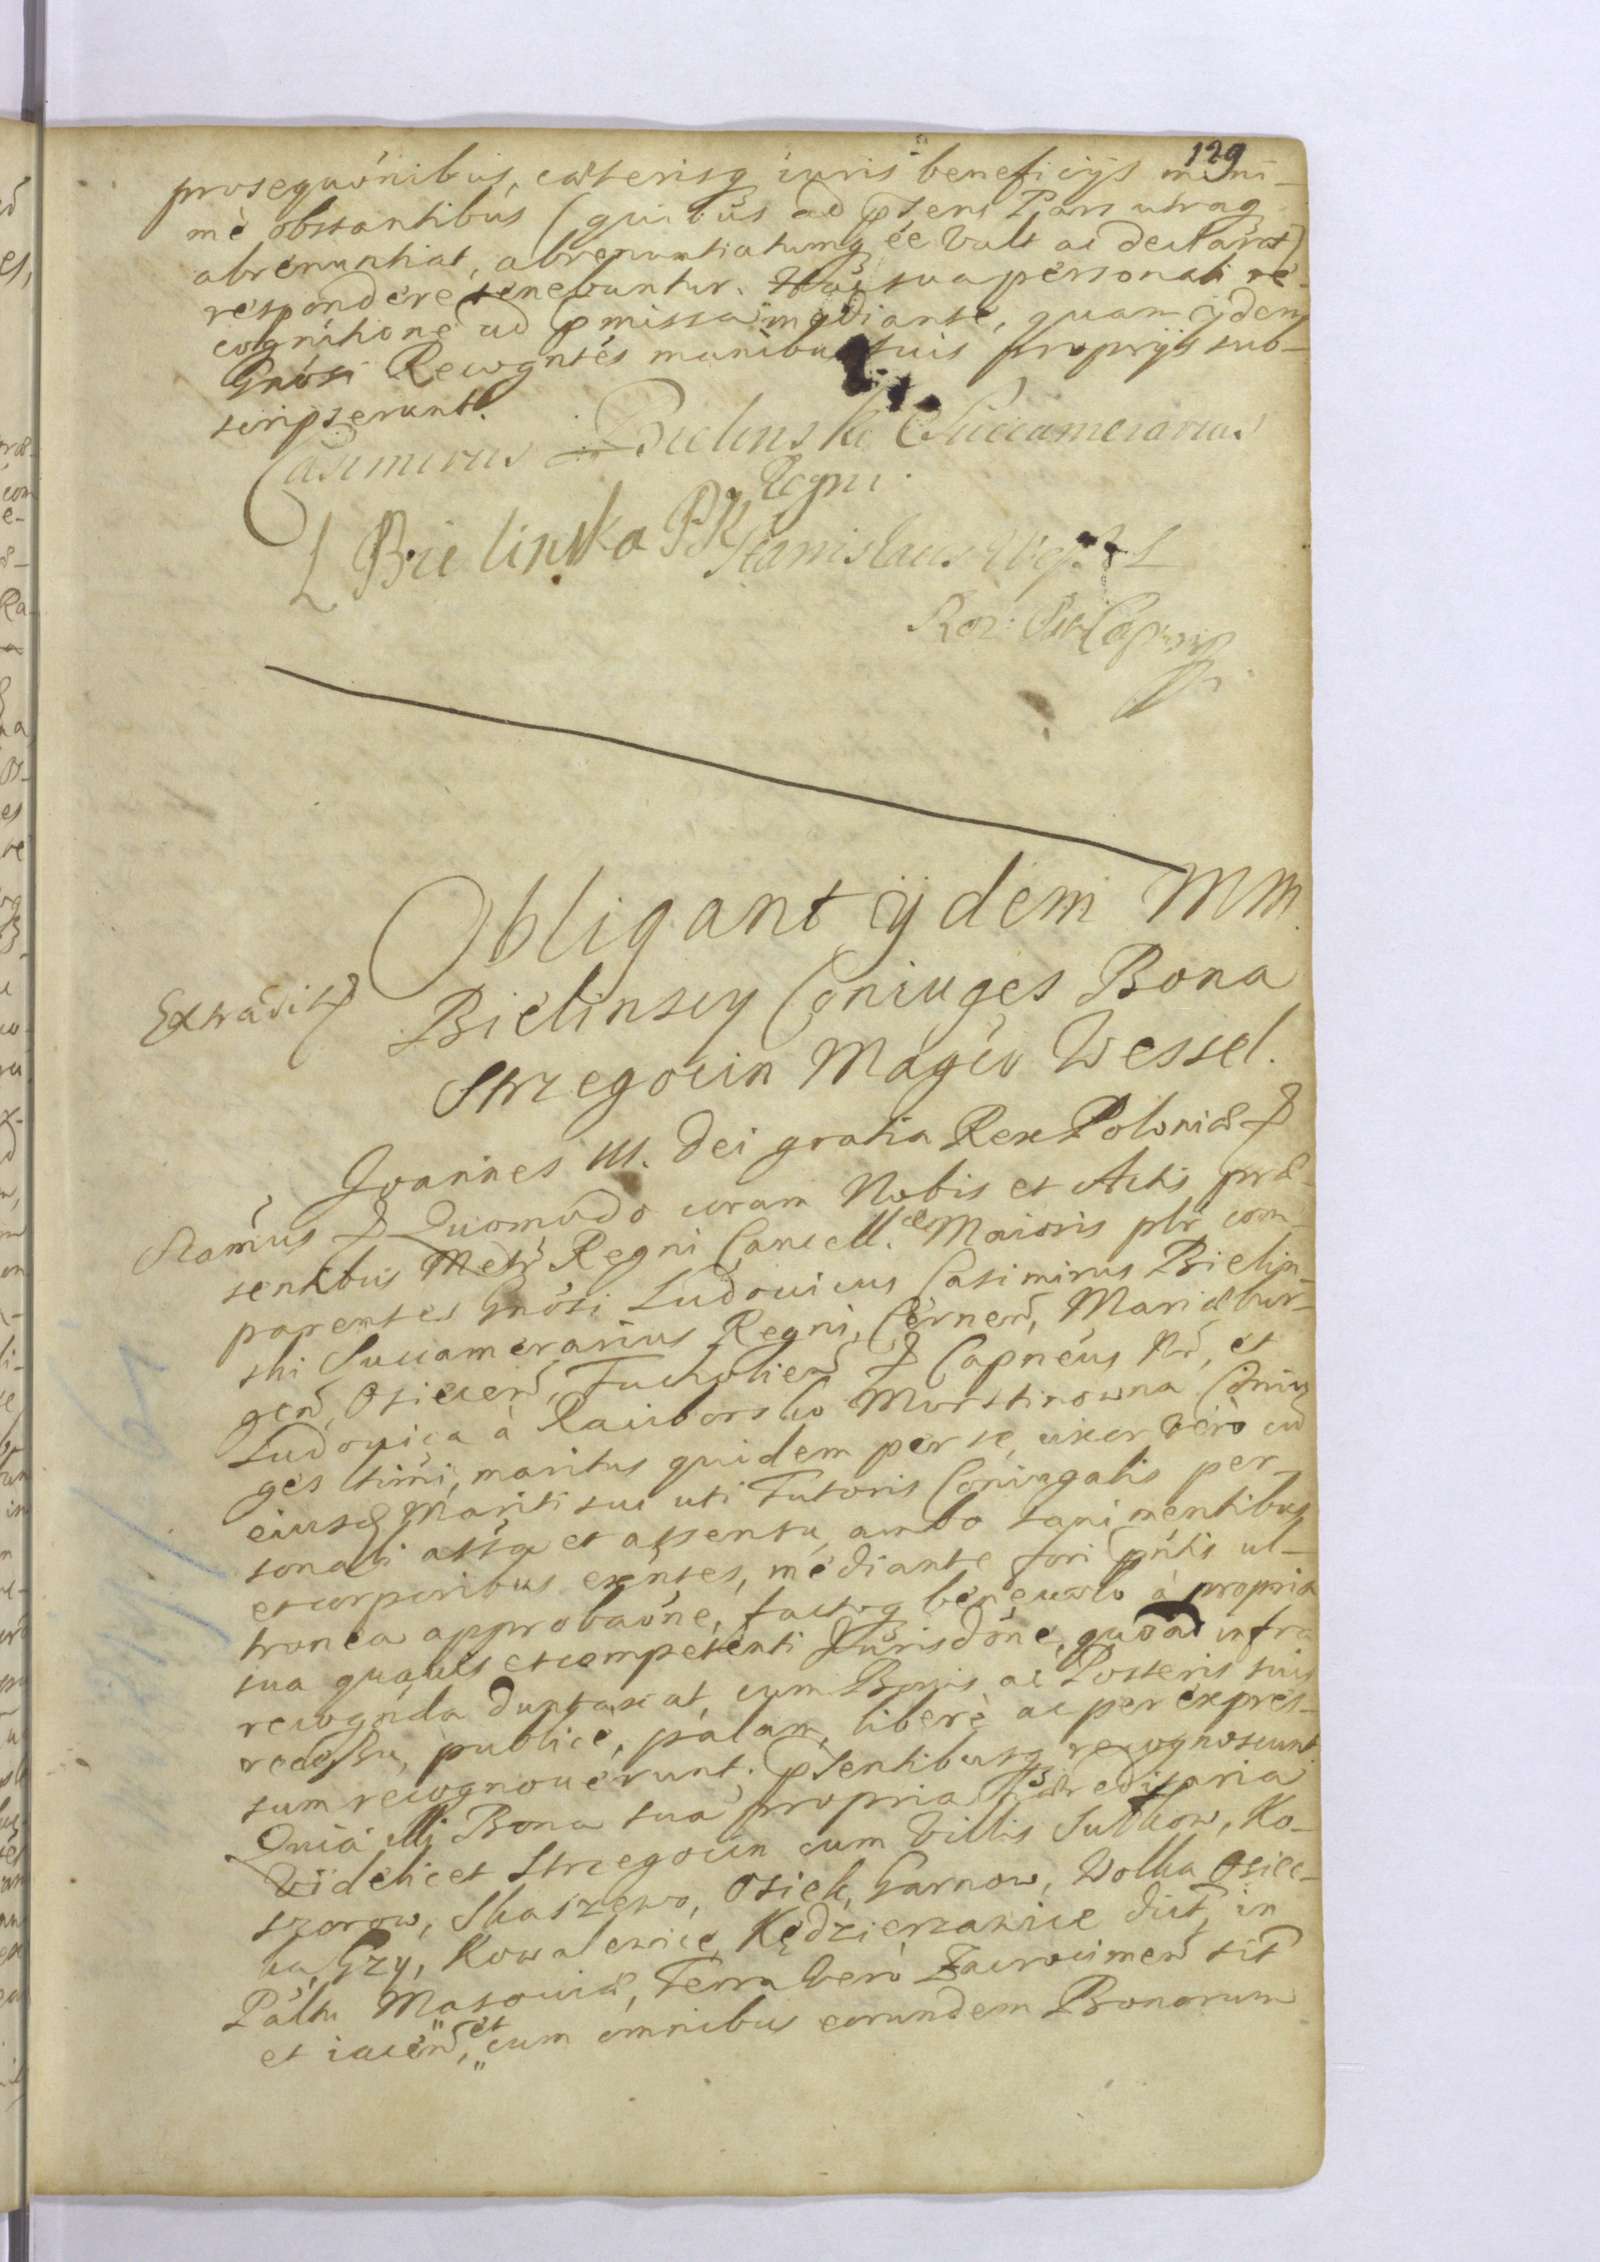 129
prosequónibus, cæterisq iuris beneficijs mini-
mè obstantibus (quibus ad pñsens Pars utraq
abrenuntiat, abrenuntiatumq ée vult ac declarat)
respondere tenebuntur. Hac sua personali re-
cognitione ad pmissa mediante, quam ijdem
Gnósi Recogntés manibus suis proprijs sub-
scripserunt.
Casimirus Bielinski Succamerarius
Regni.
L Bielinska PK Stanislaus
Obligant ijdem MM.
Bielinscy Coniuges Bona
Strzegocin Magco Wessel.
Extradit
Joannes III. Dei gratia Rex Poloniæ
Stamus Quomodo coram Nobis et Actis præ-
sentibus Metr Regni Cancell. Maioris plr com-
parentes Gnósi Ludovicus Casimirus Bielin-
ski Succamerarius Regni, Cernen, Mariæbur-
gen, Osiecen, Tucholien Capnéus Nr, et
Ludovica à Raciborsko Morstinowna Coniu-
ges ltimi, maritus quidem per se, uxor verò cu
eiusd Mariti sui uti Tutoris Coniugalis per-
sonali assa et assensu, ambo sani mentibus
et corporibus exñtes, mediante fori pñtis ul-
tronea approbaóne, factoq benevolo à propria
sua quavis et competenti Jurisdóne, quoad infra
recognda duntaxat, cum Bonis ac Posteris suis
recessu, publice, palam, libere ac per expres-
sum recognoverunt; psentibusq recognoscunt.
Quia illi Bona sua propria hæreditaria
Videlicet Strzegocin cum Villis Sulkow, Ko-
szorow, Skaszewo, Osiek, Garnow, Wolka Osiec-
ka, Gzy, Kowalewice, Kędzierzawice dict, in
Paltu Masoviæ, Terra verò Zacrocimen sit
et iacen, et cum omnibus eorundem Bonorum